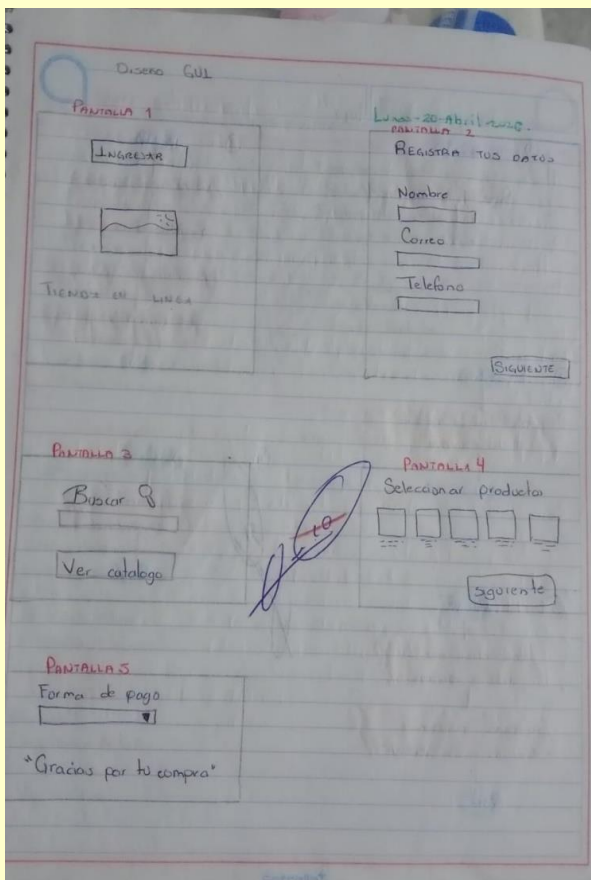 Diseño GUI
PANTALLA 1
INGRESAR
TIENDA EN LINEA
Lunes-20-Abril
PANTALLA 2
REGISTRA TUS DATOS
Nombre
Correo
Telefono
SIGUIENTE
PANTALLA 3
Buscar
Ver catalogo
10
PANTALLA 4
Seleccionar productos
Siguiente
PANTALLA 5
Forma de pago
"Gracias por tu compra"